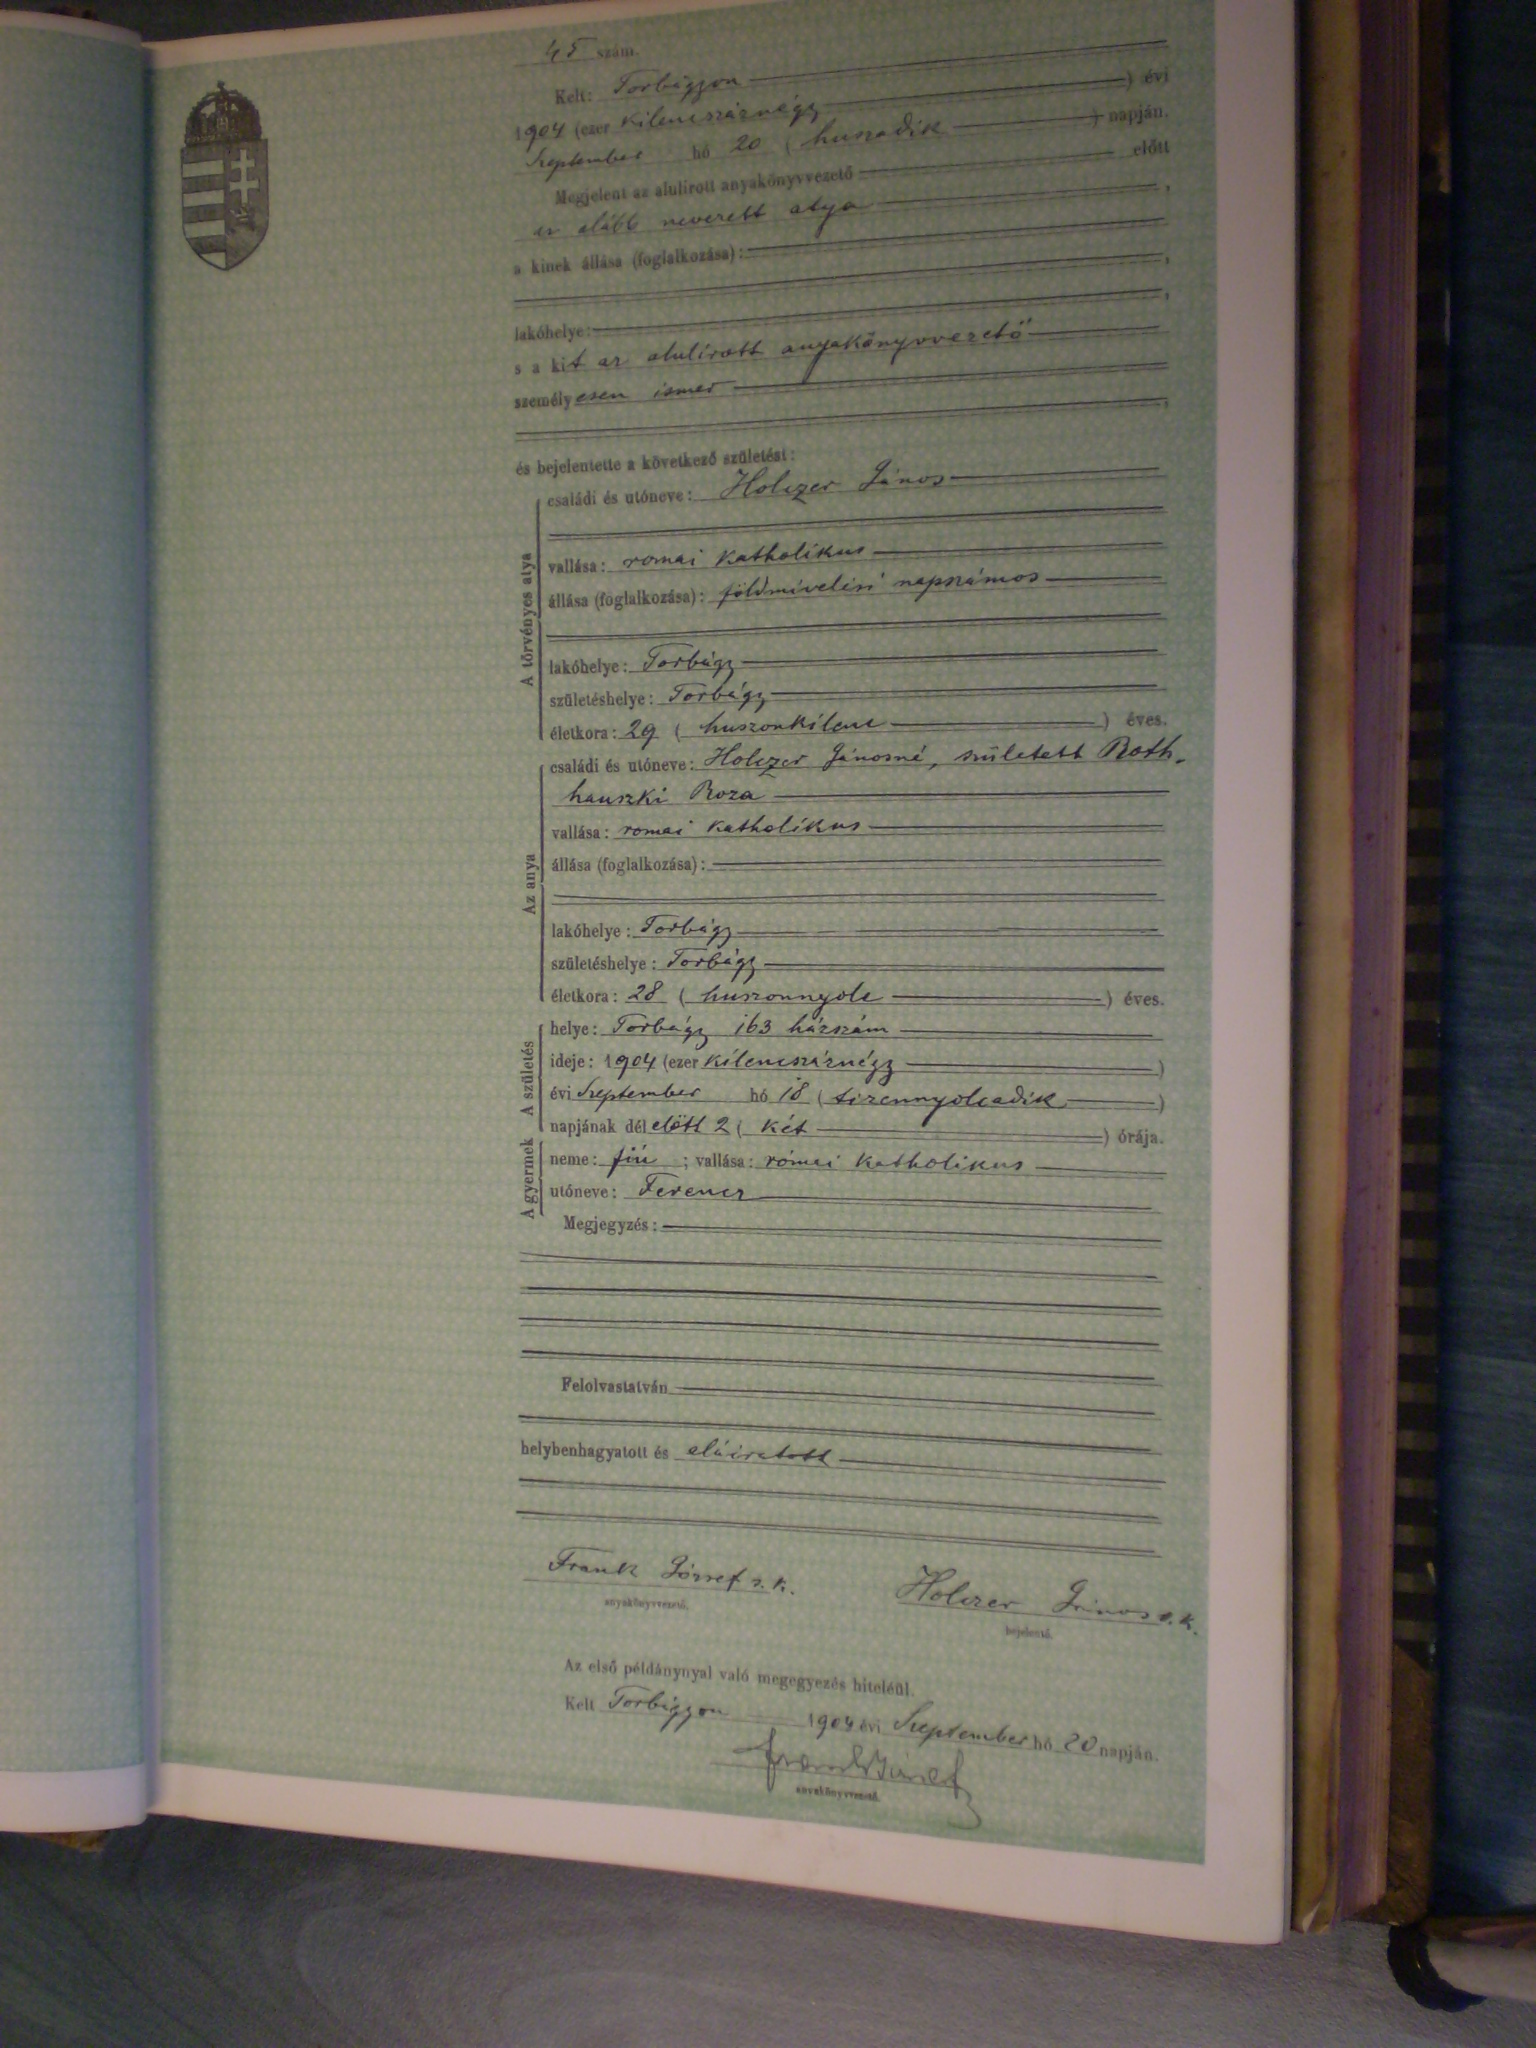 45 szám.
Kelt: Torbágyon
1904 (ezer kilenczszáznégy) évi
Szeptember hó 20 (huszadik) napján.
Megjelent az alulirott anyakönyvvezető előtt
az alább nevezett atya,
a kinek állása (foglalkozása):
lakóhelye:
s a kit az alulírott anyakönyvvezető
személyesen ismer
és bejelentette a következő születést:
A törvényes atya
családi és utóneve: Holczer János
vallása: romai katholikus
állása (foglalkozása): földmivelési napszámos
lakóhelye: Torbágy
születéshelye: Torbágy
életkora: 29 (huszonkilenc) éves.
Az anya
családi és utóneve: Holczer Jánosné, született Roth-
hauszki Roza
vallása: romai katholikus
állása (foglalkozása):
lakóhelye: Torbágy
születéshelye: Torbágy
életkora: 28 (huszonnyolc) éves.
A születés
helye: Torbágy 163 házszám
ideje: 1904 (ezer kilencszáznégy)
évi Szeptember hó 18 (tizennyolcadik)
napjának dél előtt 2 (két) órája.
A gyermek
neme: fiú; vallása: római katholikus
utóneve: Ferencz
Megjegyzés:
Felolvastatván
helybenhagyatott és aláiratott
Frank József s. k. Holczer János s. k.
anyakönyvvezető. bejelentő.
Az első példánynyal való megegyezés hiteléül.
Kelt Torbágyon 1904 évi Szeptember hó 20 napján.
Frank József
anyakönyvvezető.